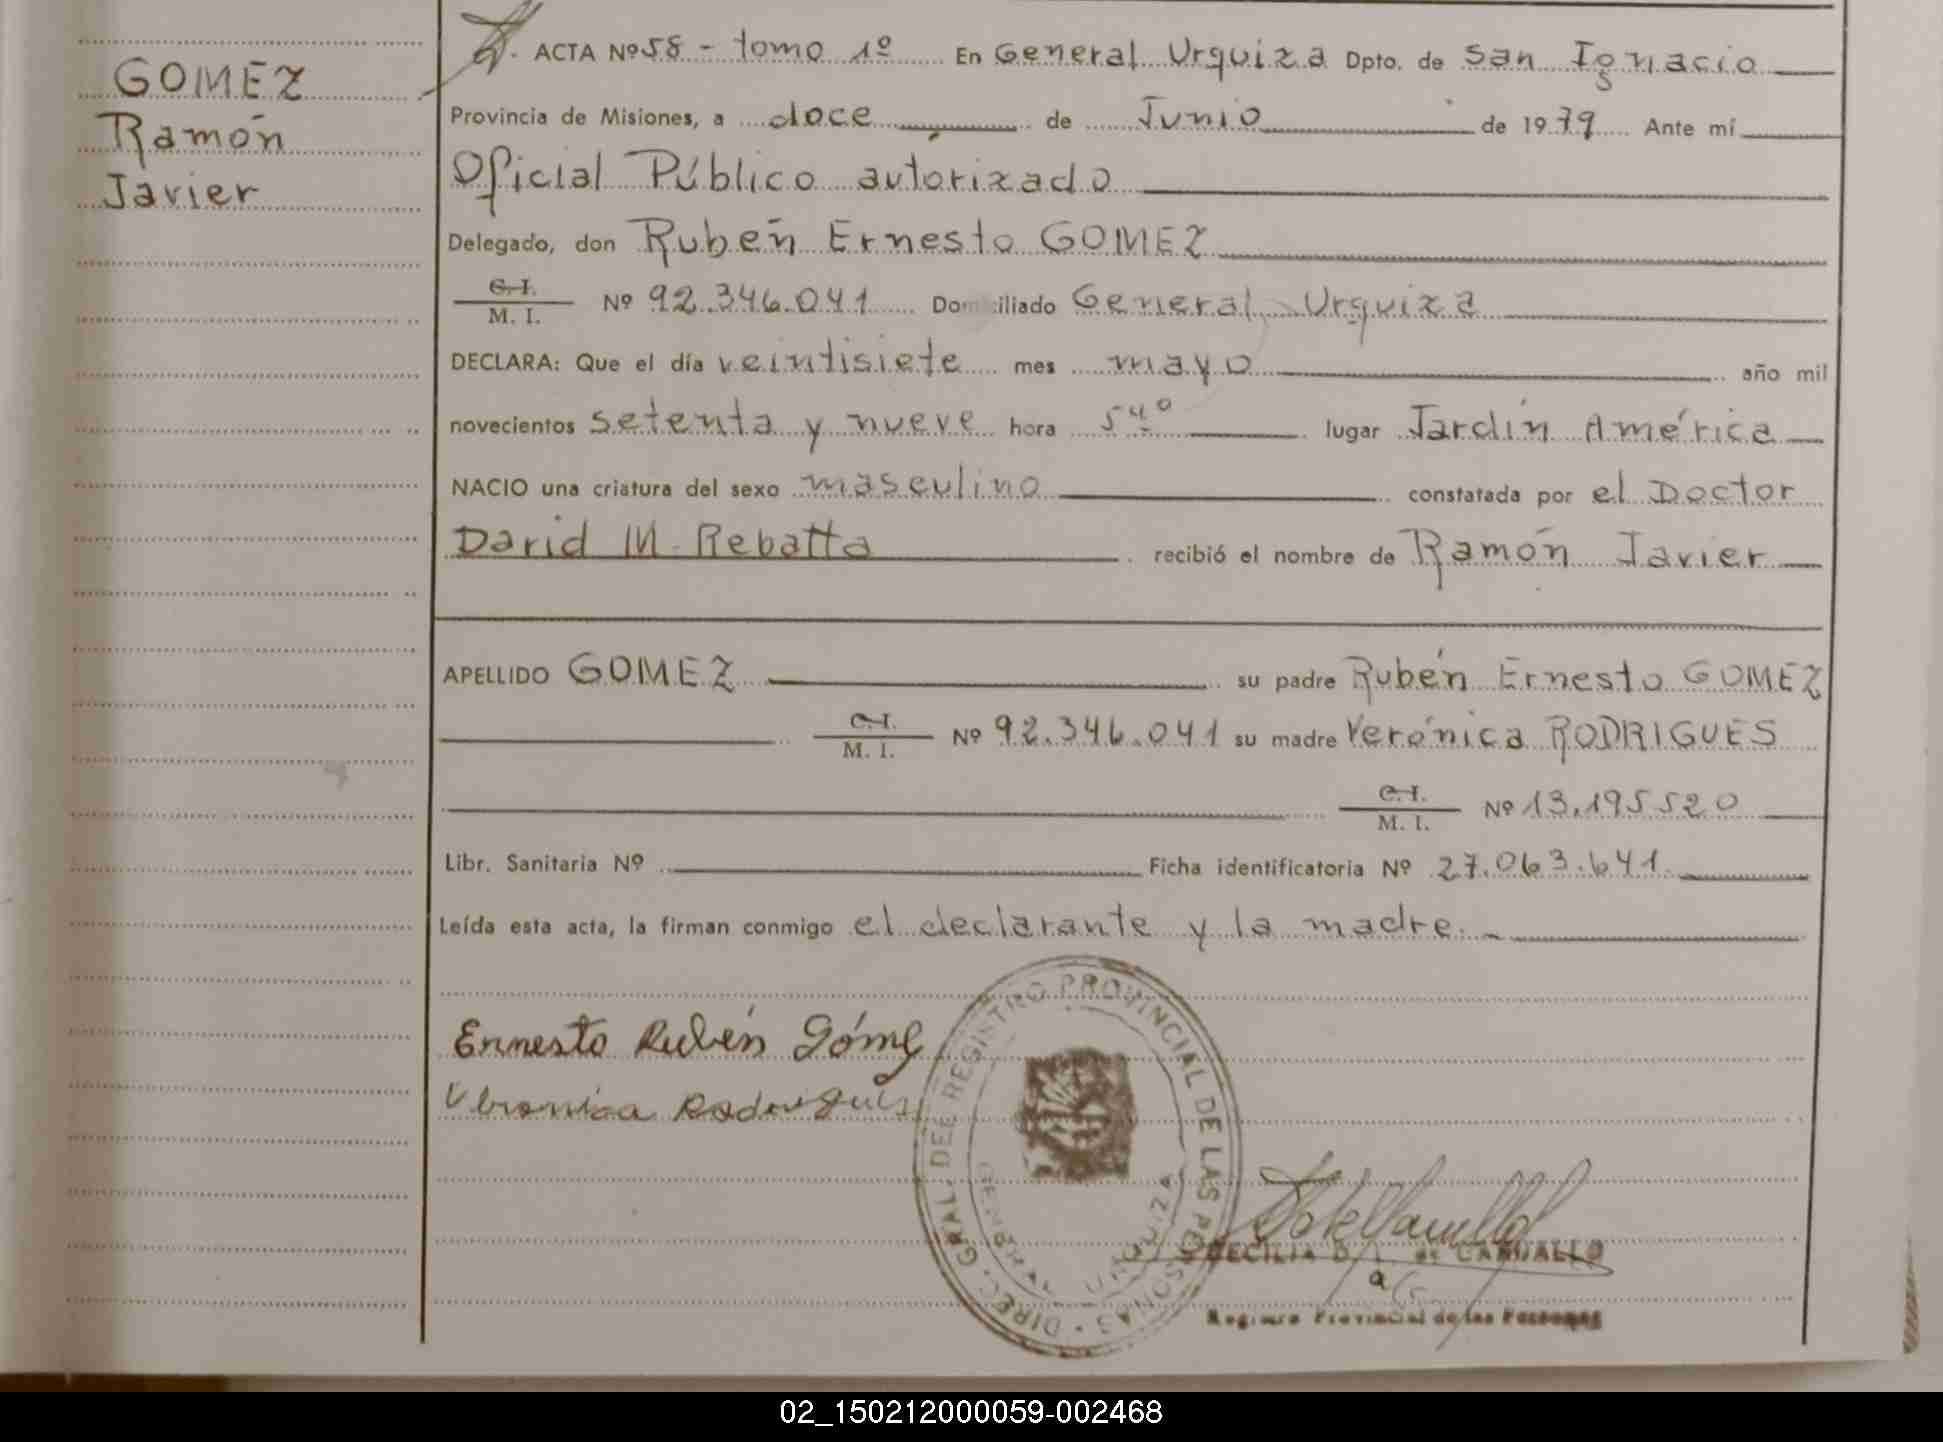 GOMEZ
Ramón
Javier
ACTA Nº 58 - tomo 1º En General Urquiza Dpto. de San Ignacio
Provincia de Misiones, a doce de Junio de 1979 Ante mí
Oficial Público autorizado
Delegado, don Rubén Ernesto GOMEZ
C. I.
M. I. Nº 92.346.041 Domiciliado General Urquiza
DECLARA: Que el día veintisiete mes mayo año mil
novecientos setenta y nueve hora 5 40 lugar Jardín América
NACIO una criatura del sexo masculino constatada por el Doctor
David M. Rebatta recibió el nombre de Ramón Javier
APELLIDO GOMEZ su padre Rubén Ernesto GOMEZ
C. I.
M. I. Nº 92.346.041 su madre Verónica RODRIGUES
C. I.
M. I. Nº 13.195520
Libr. Sanitaria Nº Ficha identificatoria Nº 27.063.641.
Leída esta acta, la firman conmigo el declarante y la madre.
Ernesto Rubén Gómez
Veronica Rodrigues
DIREC. GRAL. DEL REGISTRO PROVINCIAL DE LAS PERSONAS
GENERAL URQUIZA
CECILIA D. de CARVALLO
a/c
Registro Provincial de las Personas
02_150212000059-002468